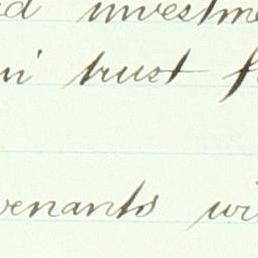 d investme
in trust f
venants wi